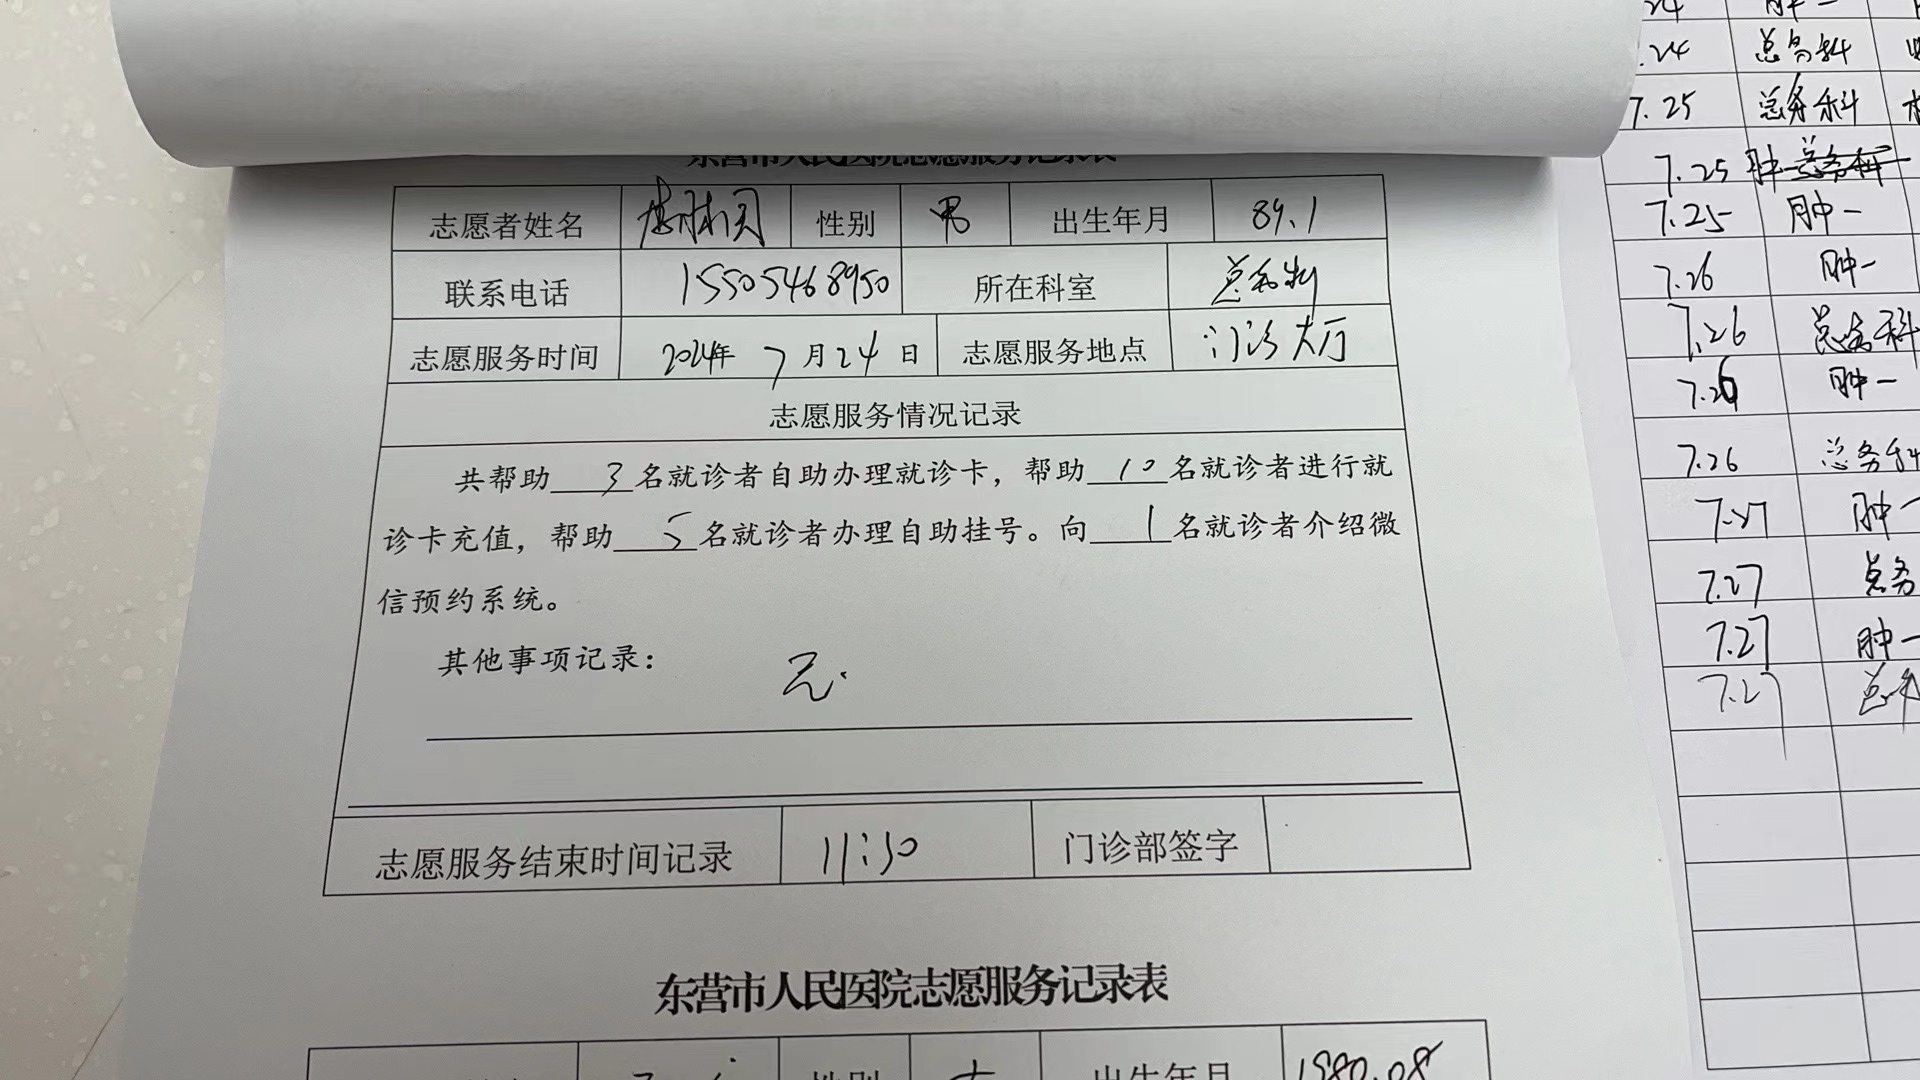 东营市人民医院志愿服务记录表
志愿者姓名 性别 男 出生年月 89.1
联系电话 15505468950 所在科室 总务科
志愿服务时间 2024年 7月24日 志愿服务地点 门诊大厅
志愿服务情况记录
共帮助 3 名就诊者自助办理就诊卡，帮助 10 名就诊者进行就
诊卡充值，帮助 5 名就诊者办理自助挂号。向 1 名就诊者介绍微
信预约系统。
其他事项记录： 无.
志愿服务结束时间记录 11:30 门诊部签字
东营市人民医院志愿服务记录表
性别 出生年月 1980.08
.24 肿一
.24 总务科
7.25 总务科
7.25 肿一
7.25 肿一
7.26 肿一
7.26 总务科
7.26 肿一
7.26 总务科
7.27 肿一
7.27 总务
7.27 肿一
7.27 总